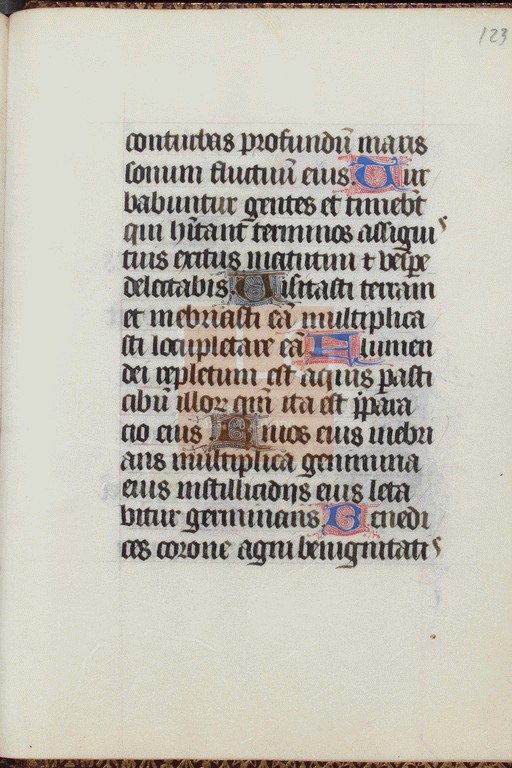 123
conturbas profundū maris
sonum fluctuū eius Tur
babuntur gentes et timebt̄
qui hītant terminos a signi
tuis exitus matutini ⁊ vespe
delectabis Visitasti terram
et inebriasti eā multiplica
sti locupletare eā Flumen
dei repletum est aquis pasti
cibū illoꝝ qm̄ ita est ꝑpara
cio eius Riuos eius inebri
ans multiplica genimina
eius in stillicidijs eius leta
bitur germinans Benedi
ces corone agni benignitatis